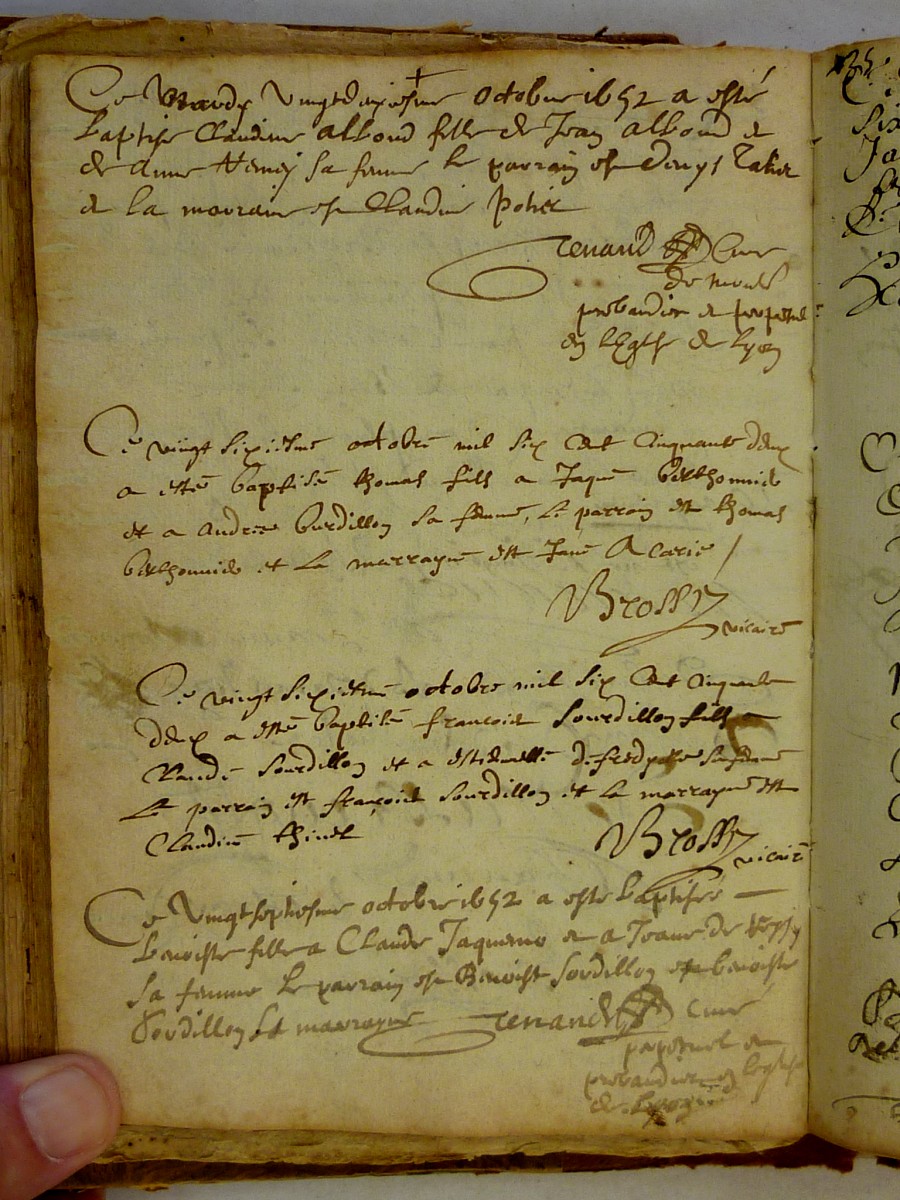 Ce Mardy Vingtdeuxiesme octobre 1652 a esté
baptise Claudine allond fille de Jean allond &
de Anne sa femme le parrain est Denys
& la marraine est Claudine Potier
Renand Curé
de
prebandier & perpetuel
en l'Eglise de Lyon
Ce vingt sixiesme octobre mil six cent cinquante deux
a estté baptisé thomas fils a Jaque Berthonnide
et a Andree burdillon sa femme, le parrain est thomas
Berthonnide et la marrayne est Jane Acarie /
Brossy
vicaire
Ce vingt sixiesme octobre mil six cent cinquante
deux a estté baptisé françois Sourdillon fils a
Claude Sourdillon et a estiennette sa femme
Le parrain est françois Sourdillon et la marrayne est
Claudine thinet
Brossy
vicaire
Ce Vingtseptiesme octobre 1652 a esté baptisée
benoiste fille a Claude Jaquemo & a Jeane de
sa femme le parrain est Benoist Sordillon & benoiste
Sordillon sa marrayne Renand Curé
perpetuel &
prebandier en leglise
de Lyon